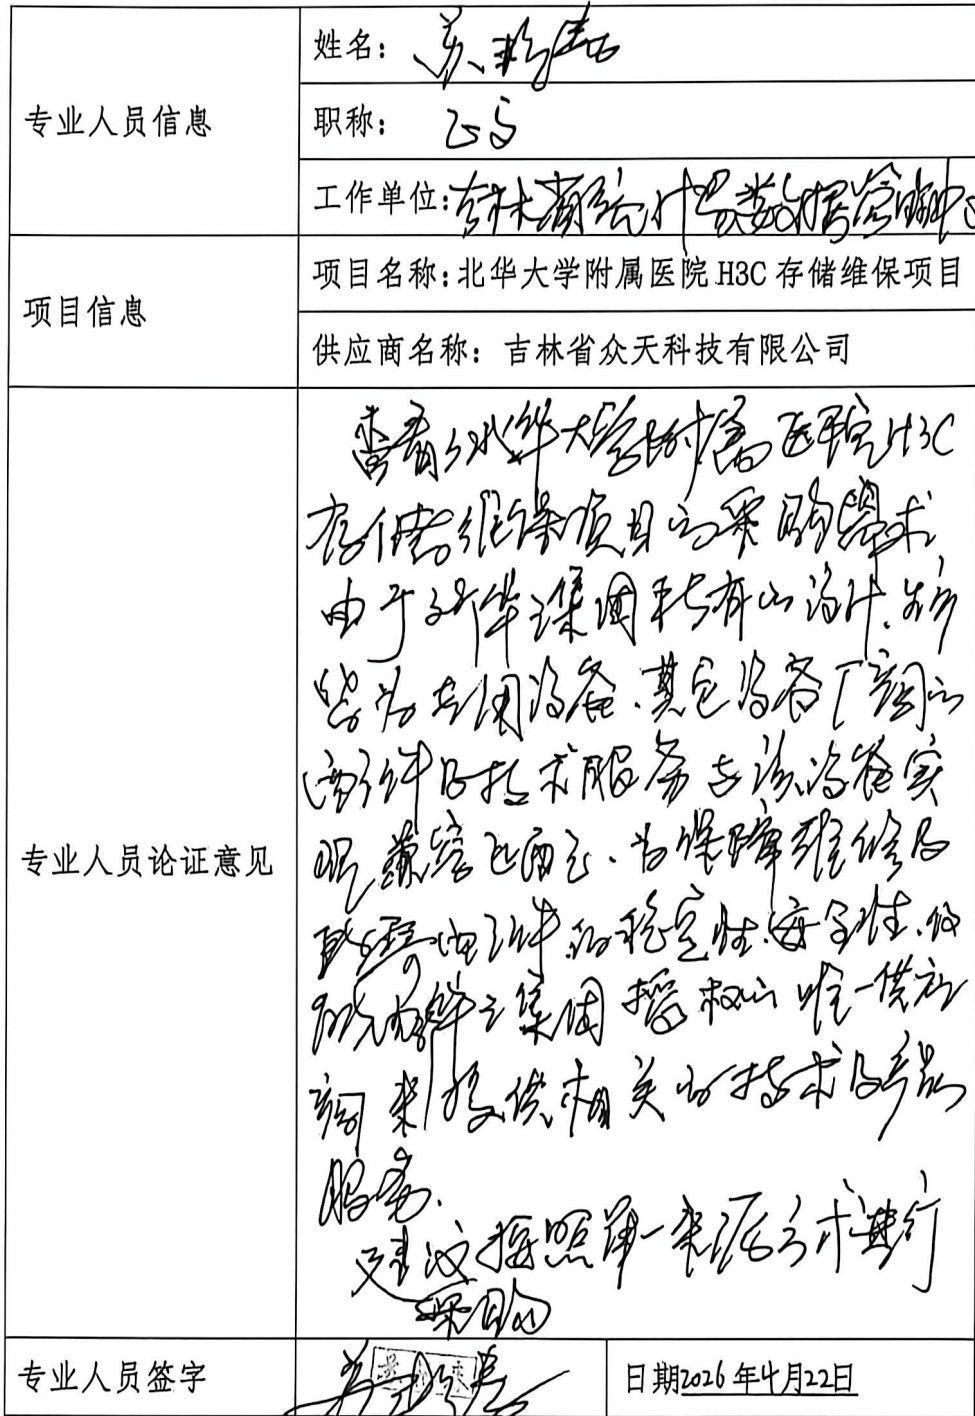 专业人员信息
姓名：
职称：正高
工作单位：吉林省统计局数据管理中心
项目信息
项目名称：北华大学附属医院H3C存储维保项目
供应商名称：吉林省众天科技有限公司
专业人员论证意见
查看了北华大学附属医院H3C
存储维保项目的采购需求
由于新华三集团 有的设计、生产
皆为专用设备、其它设备厂商的
部件及技术服务与该设备实
现兼容匹配、为保障维修及
配件的稳定性、安全性、
华三集团授权的唯一供应
商来提供相关的技术及产品
服务.
建议按照单一来源方式进行
采购
专业人员签字
日期2026年4月22日